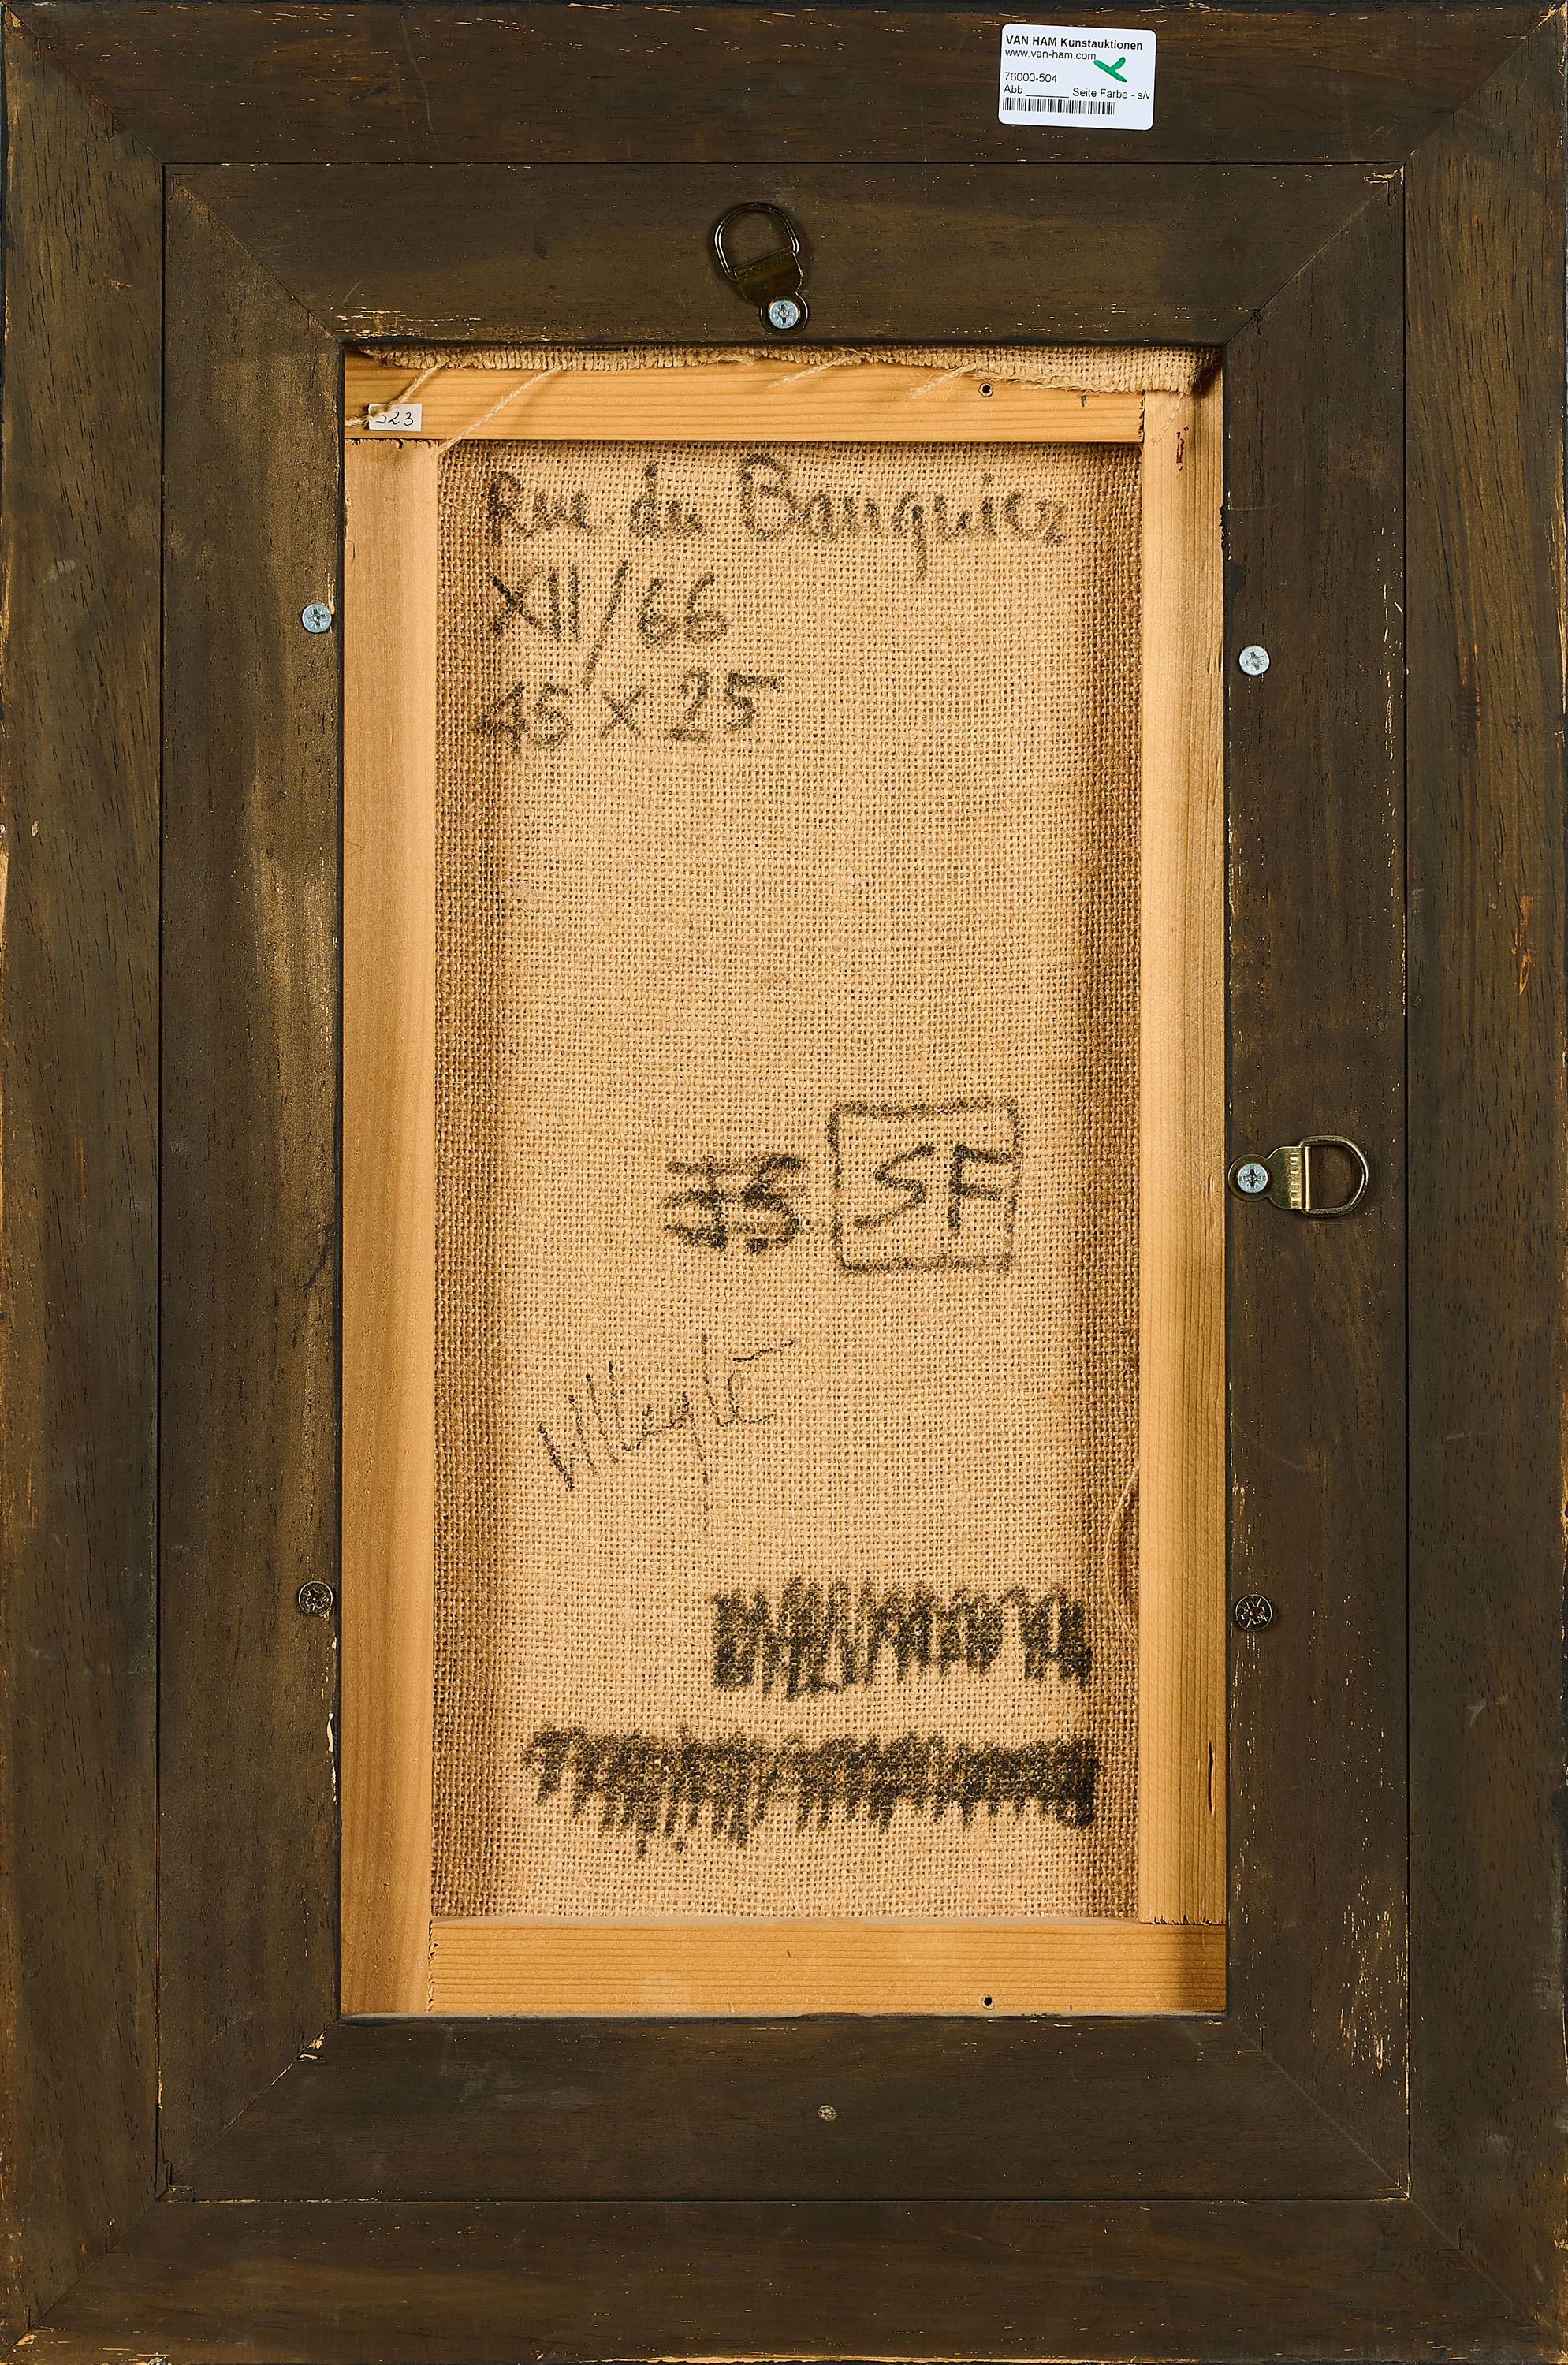 VAN HAM Kunstauktionen
www.van-ham.com
76000-504
Abb ______ Seite Farbe - s/w
323
Rue du Banquier
XII/66
45 x 25
SF
Villeglé